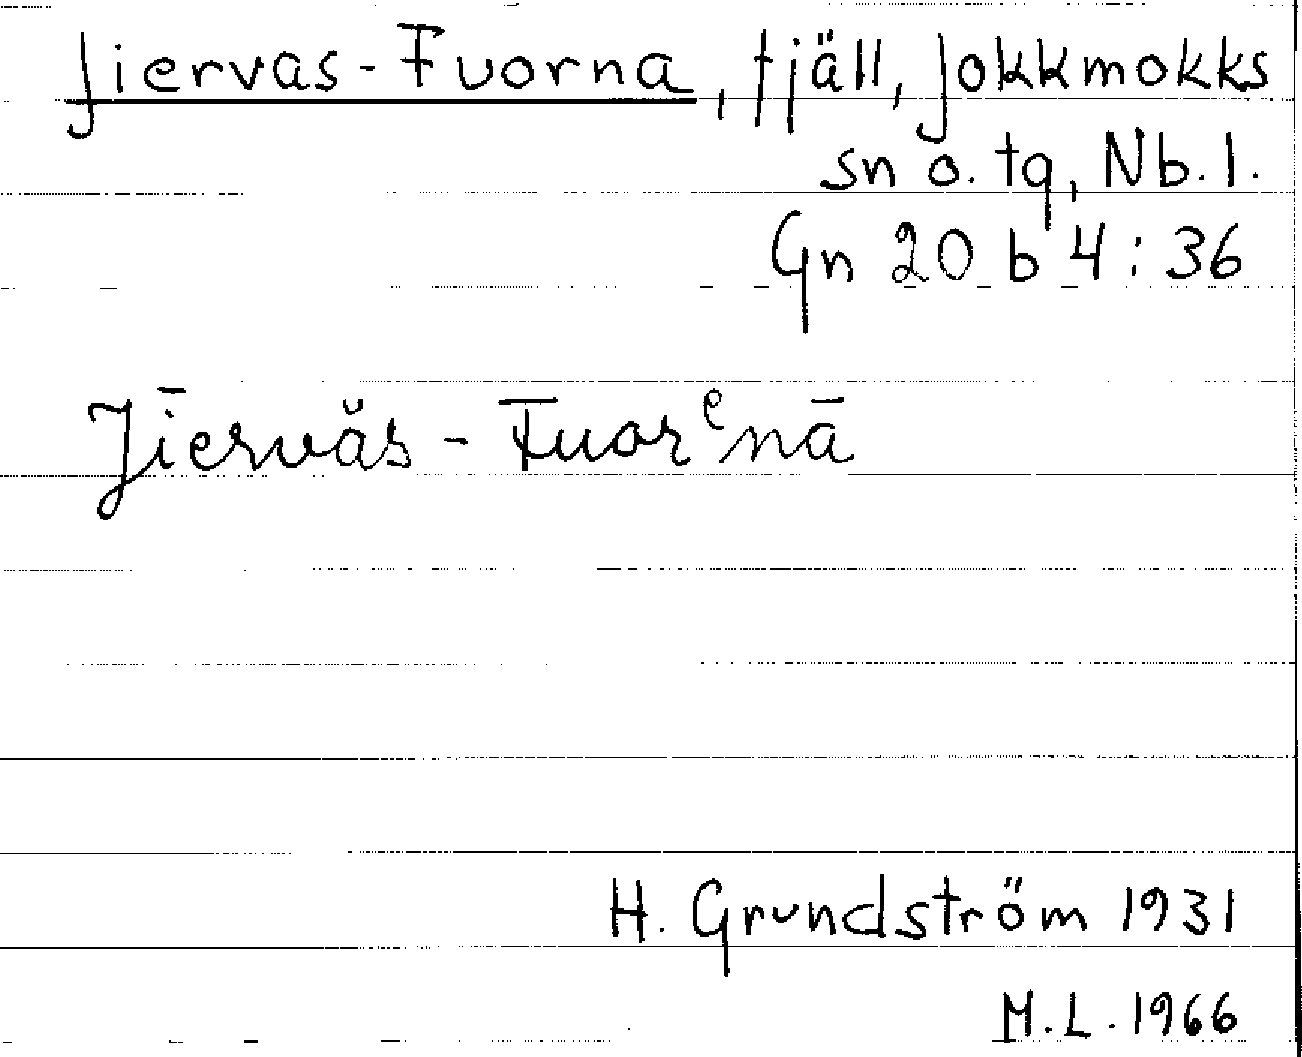 Jiervas-Fuorna, fjäll, Jokkmokks
sn o. tg, Nb. l.
Gn 20 b 4:36
Jīervăs - Fuorᵉnā
H. Grundström 1931
M.L. 1966